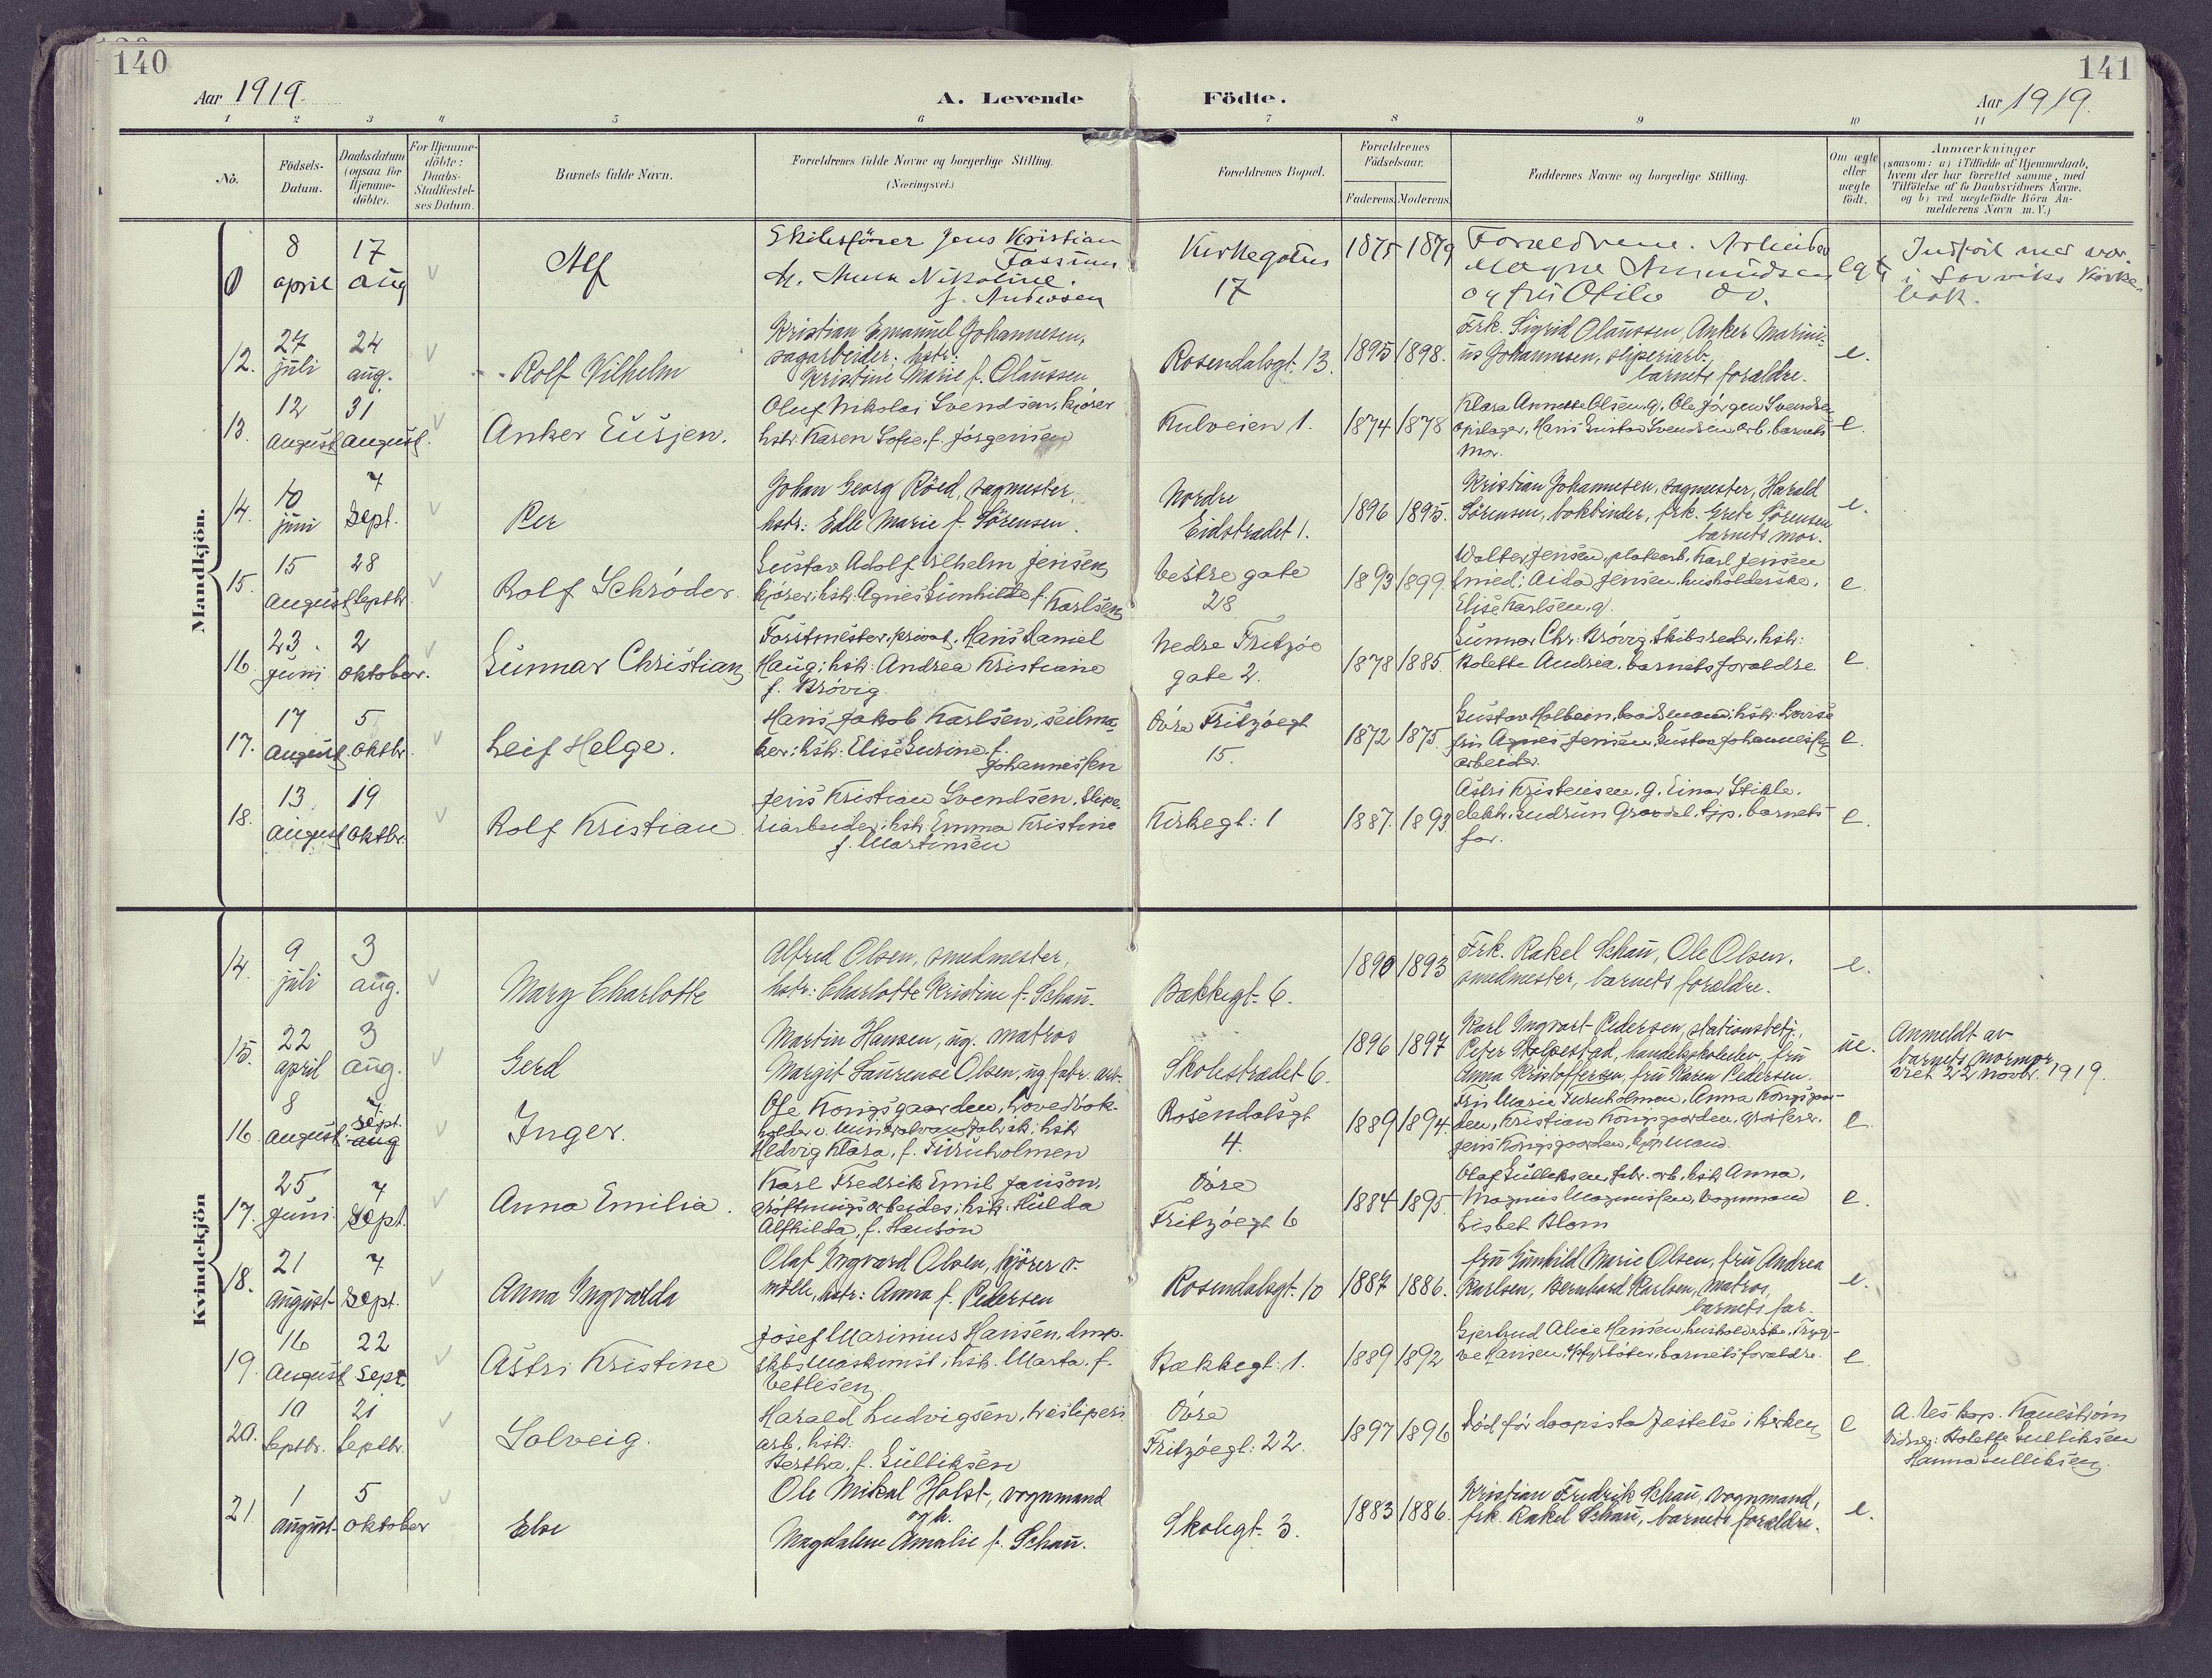 140
141
Aar 1919.
A. Levende Födte.
Aar 1919.
1 2 3 4 5 6 7 8 9 10 11
No.
Födsels-Datum.
Daabsdatum (ogsaa for Hjemme-döbte).
For Hjemme-döbte: Daabs-Stadfestel-ses Datum.
Barnets fulde Navn.
Forældrenes fulde Navne og borgerlige Stilling.
(Næringsvei.)
Forældrenes Bopæl.
Forældrenes Födselsaar.
Faderens. Moderens.
Faddernes Navne og borgerlige Stilling.
Om ægte eller uægte födt.
Anmærkninger
(saasom: a) i Tilfælde af Hjemmedaab,
hvem der har forrettet samme, med
Tilföielse af to Daabsvidners Navne.
og b) ved uægtefödte Börn An-
melderens Navn m. V.)
Mandkjön.
0 8 april 17 aug Alf
Skibsfører Jens Kristian
Fossum
Nikoline
f. Andersen
Kirkegaten
17
1875 1879
Forældrene. Arbeider
Magne Amundsen
og fru Otilie do.
egte
Indført
i Kirke-
bok.
12. 27 juli 24 aug. Rolf Vilhelm
Kristian Emanuel Johannesen,
sagarbeider. hstr:
Kristine Marie f. Olaussen
Rosendalsgt. 13.
1895 1898.
Frk. Sigrid Olaussen, Anker Marini-
us Johannsen, sliperiarb.,
barnets forældre.
e.
13. 12 august 31 august. Anker Eusjen.
Oluf Nikolai Svendsen, kjører
hstr. Karen Sofie, f. Jørgensen
Kulveien 1.
1874 1878
Klara Annette Olsen, g. Ole Jørgen Svendsen
Hans Gustav Svendsen arb. barnets
mor.
e.
14. 10 juni 7 Sept. Per
Johan Georg Röed, sagmester,
hstr: Edle Marie f. Sörensen.
Nordre
Eidstrædet 1.
1896 1895.
Kristian Johannesen, sagmester, Harald
Sörensen, bokbinder, frk. Grete Sörensen
barnets mor.
e.
15. 15 august 28 septbr. Rolf Schröder.
Gustav Adolf Vilhelm Jensen
kjører, hstr. Agnes Gunhilde f. Karlsen
Vestre gate
28
1893 1899.
Walter Jensen, platearb. Karl Jensen
smed; Aida Jensen, husholderske,
Elise Karlsen, g.
e
16. 23 Juni 2 oktober. Gunnar Christian
Forstmester, privat, Hans Daniel
Haug; hstr: Andrea Kristiane
f. Brövig.
Nedre Fritzöe
gate 2.
1878 1885
Gunnar Chr. Brövig, Skibsreder, hstr:
Bolette Andrea, barnets forældre
e
17. 17 august 5 oktbr. Leif Helge.
Hans Jakob Karlsen, seilma-
ker: hstr: Elise Gurine f.
Johannessen
Övre Fritzöegt
15.
1872 1875.
Gustav Holbein, baadsmand; hstr: Lovise
fru Agnes Jensen, Gustav Johannessen
arbeider.
e.
18. 13 august 19 oktbr. Rolf Kristian
Jens Kristian Svendsen, Slipe-
riarbeider; hstr. Emma Kristine
f. Martinsen
Kirkegt: 1
1887. 1893.
Astri Kristensen, g. Einar Stikle,
elektr. Gudrun Gravdal, tjp. barnets
far.
e.
Kvindekjön
14. 9 juli 3 aug. Mary Charlotte
Alfred Olsen, smedmester,
hstr: Charlotte Kristine f. Schau.
Bækkegt. 6.
1890 1893
Frk. Rakel Schau, Ole Olsen,
smedmester, barnets forældre.
e.
15. 22 april 3 aug. Gerd
Martin Hansen, ug. matros
Margit Laurense Olsen, ug fabr. arb.
Skolestrædet 6.
1896 1897
Karl Ingvart Pedersen, stationsbetj.,
Peter Stolpestad, handelsskoleelev, fru
Anna Kristoffersen, fru Karen Pedersen.
ue.
Anmeldt av
barnets mormor
viet 22 novbr. 1919.
16. 8 august 7 Sept. aug Inger.
Ole Kongsgaarden, hovedbok-
holder v. Mineralvandfabrik: hstr
Hedvig Klara, f. Furuholmen
Rosendalsgt
4.
1889 1894.
Fru Marie Furuholmen, Anna Kongsgaar-
den, Kristian Kongsgaarden, grosserer,
Jens Kongsgaarden, kjøpmand.
e.
17. 25 Juni 7 Sept. Anna Emilia.
Karl Fredrik Emil Janson,
gröftningsarbeider; hstr: Hulda
Alfhilda, f. Hanson
Övre
Fritzöegt 6
1884 1895.
Olaf Gulliksen, fabr. arb, hstr Anna,
Magnus Magnussen, vognmand
Lisbet Blom
e.
18. 21 august 7 Sept. Anna Ingvarda
Olaf Ingvard Olsen, kjører v.
mölle, hstr: Anna f. Pedersen
Rosendalsgt. 10
1887 1886.
fru Gunhild Marie Olsen, fru Andrea
Karlsen, Bernhard Karlsen, matros,
barnets far.
e.
19. 16 August 22 Sept. Astri Kristine
Josef Marinius Hansen, dmp.
skbsmaskinist; hstr. Marta, f.
Vetlesen
Bækkegt: 1.
1889 1892
Gjertrud Alice Hansen, husholderske, Tryg-
ve Hansen, fyrböter, barnets forældre.
e
20. 10 septbr. 21 septbr. Solveig.
Harald Ludvigsen, tresliperi
arb, hstr:
Bertha, f. Gulliksen
Övre
Fritzöegt: 22.
1897 1896
Död för daapsstadfestelse i kirken
e
A. res kap. Kaueström
Vidner: Bolette Gulliksen
Hanna Gulliksen.
21. 1 august 5 oktober Else
Ole Mikal Holst, vognmand
og h.
Magdalene Amalie f. Schau.
Skolegt. 3.
1883 1886.
Kristian Fredrik Schau, vognmand,
frk. Rakel Schau, barnets forældre.
e.